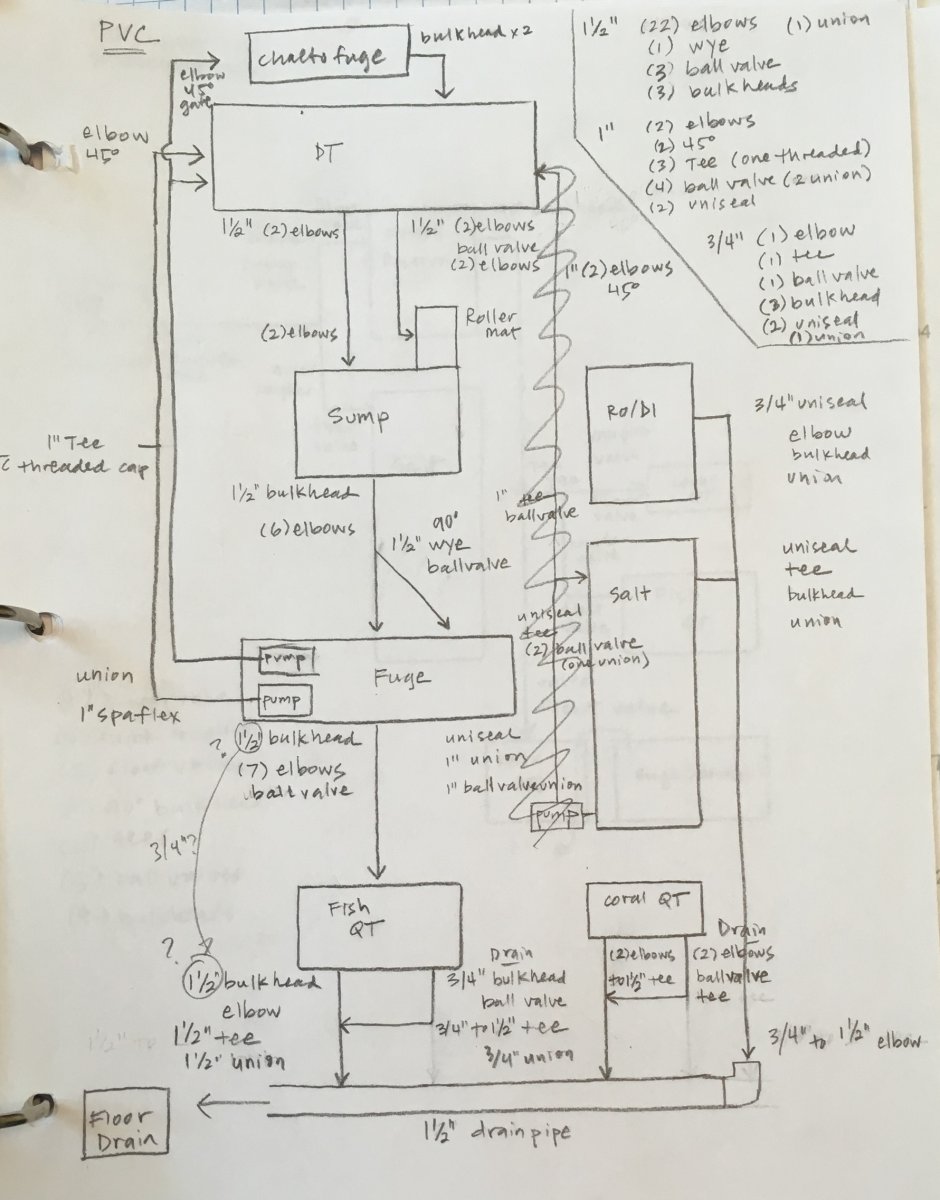 PVC
chaeto fuge
bulkhead x 2
elbow
45°
gate
elbow
45°
DT
1½" (22) elbows (1) union
(1) wye
(3) ball valve
(3) bulkheads
1" (2) elbows
(2) 45°
(3) Tee (one threaded)
(4) ball valve (2 union)
(2) uniseal
3/4" (1) elbow
(1) tee
(1) ball valve
(3) bulkhead
(2) uniseal
(1) union
1½" (2) elbows
1½" (2) elbows
ball valve
(2) elbows
1" (2) elbows
45°
(2) elbows
Roller
mat
Sump
RO/DI
3/4" uniseal
elbow
bulkhead
union
1" Tee
c̄ threaded cap
1½" bulkhead
(6) elbows
90°
1½" wye
ballvalve
1"
tee
ballvalve
Salt
uniseal
tee
bulkhead
union
uniseal
tee
(2) ball valve
(one union)
pump
pump
Fuge
union
1" spaflex
?
1½" bulkhead
(7) elbows
ball valve
uniseal
1" union
1" ball valve union
pump
3/4"?
Fish
QT
coral QT
?
1½" bulkhead
elbow
1½" tee
1½" union
Drain
3/4" bulkhead
ball valve
3/4" to 1½" tee
3/4" union
(2) elbows
to 1½" tee
Drain
(2) elbows
ball valve
tee
3/4" to 1½" elbow
Floor
Drain
1½" drain pipe